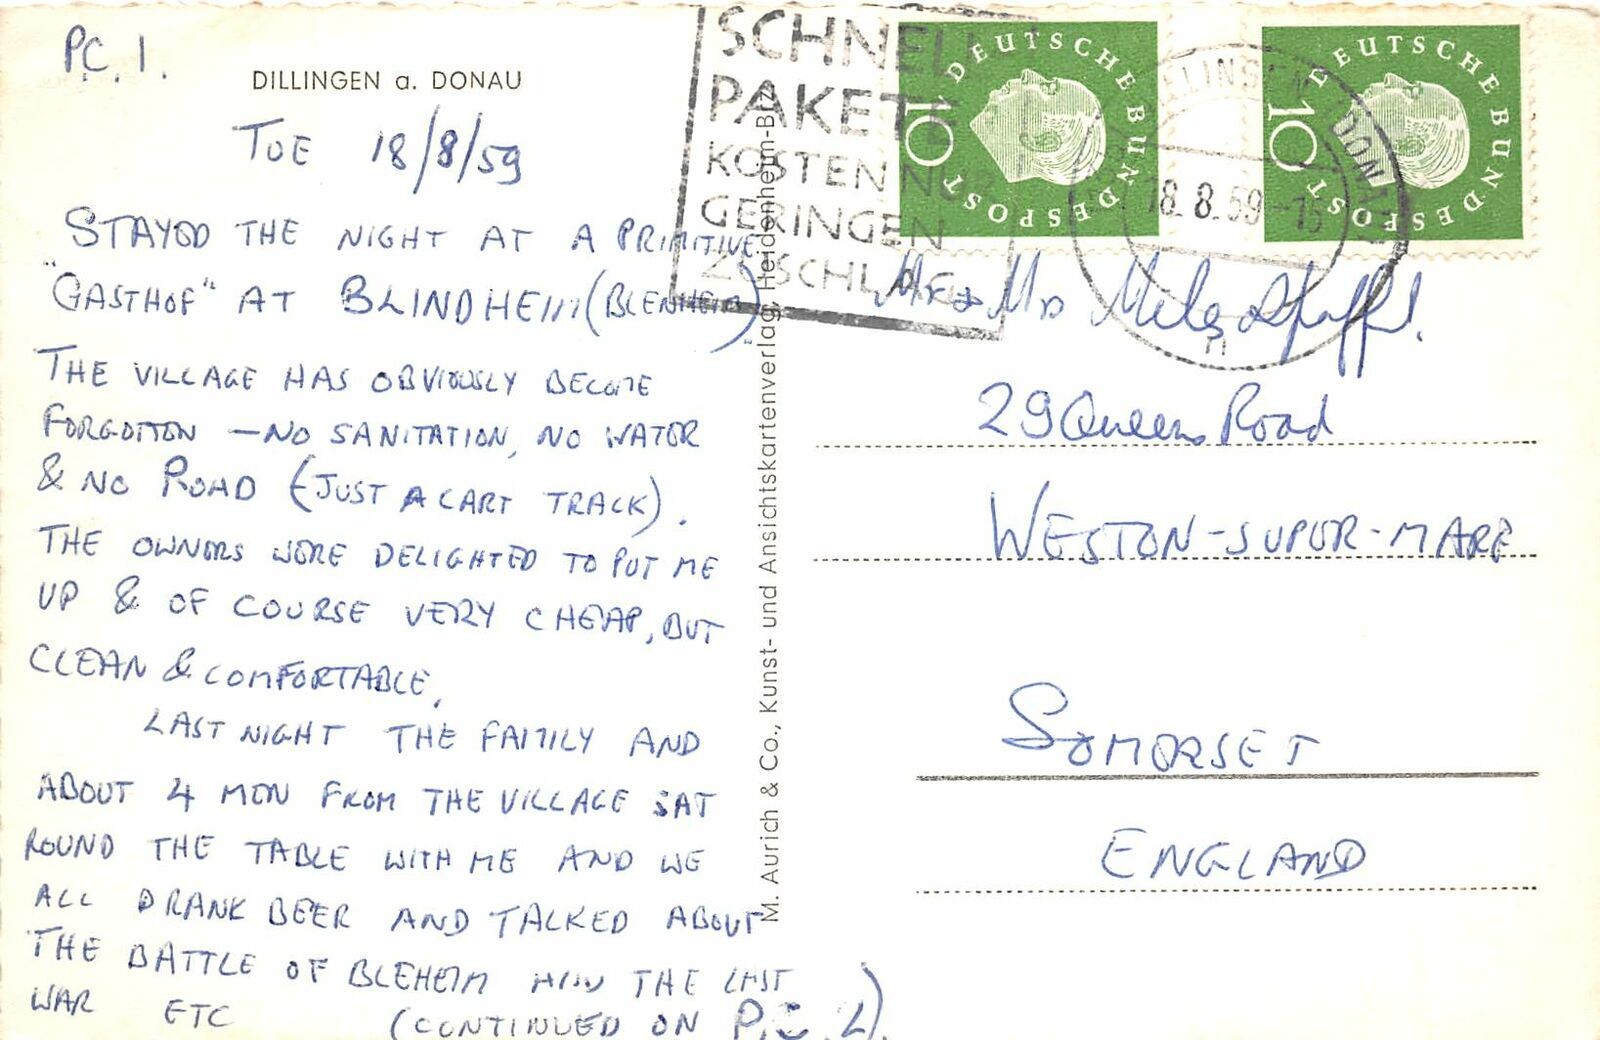 P.C. 1.
DILLINGEN a. DONAU
TUE 18/8/59
STAYED THE NIGHT AT A PRIMITIVE
"GASTHOF" AT BLINDHEIM (BLENHEIM)
THE VILLAGE HAS OBVIOUSLY BECOME
FORGOTTEN — NO SANITATION, NO WATER
& NO ROAD (JUST A CART TRACK).
THE OWNERS WERE DELIGHTED TO PUT ME
UP & OF COURSE VERY CHEAP, BUT
CLEAN & COMFORTABLE.
LAST NIGHT THE FAMILY AND
ABOUT 4 MEN FROM THE VILLAGE SAT
ROUND THE TABLE WITH ME AND WE
ALL DRANK BEER AND TALKED ABOUT
THE BATTLE OF BLEHEIM AND THE LAST
WAR ETC (CONTINUED ON P.C. 2).
M. Aurich & Co., Kunst- und Ansichtskartenverlag, Heidenheim-Brz.
SCHNELL
PAKETE
KOSTEN NUR
GERINGEN
ZUSCHLAG
DEUTSCHE BUNDESPOST
10
DEUTSCHE BUNDESPOST
10
DILLINGEN (DONAU)
18.8.59-15
n
Mr & Mrs Miles
29 Queens Road
WESTON-SUPER-MARE
SOMERSET
ENGLAND